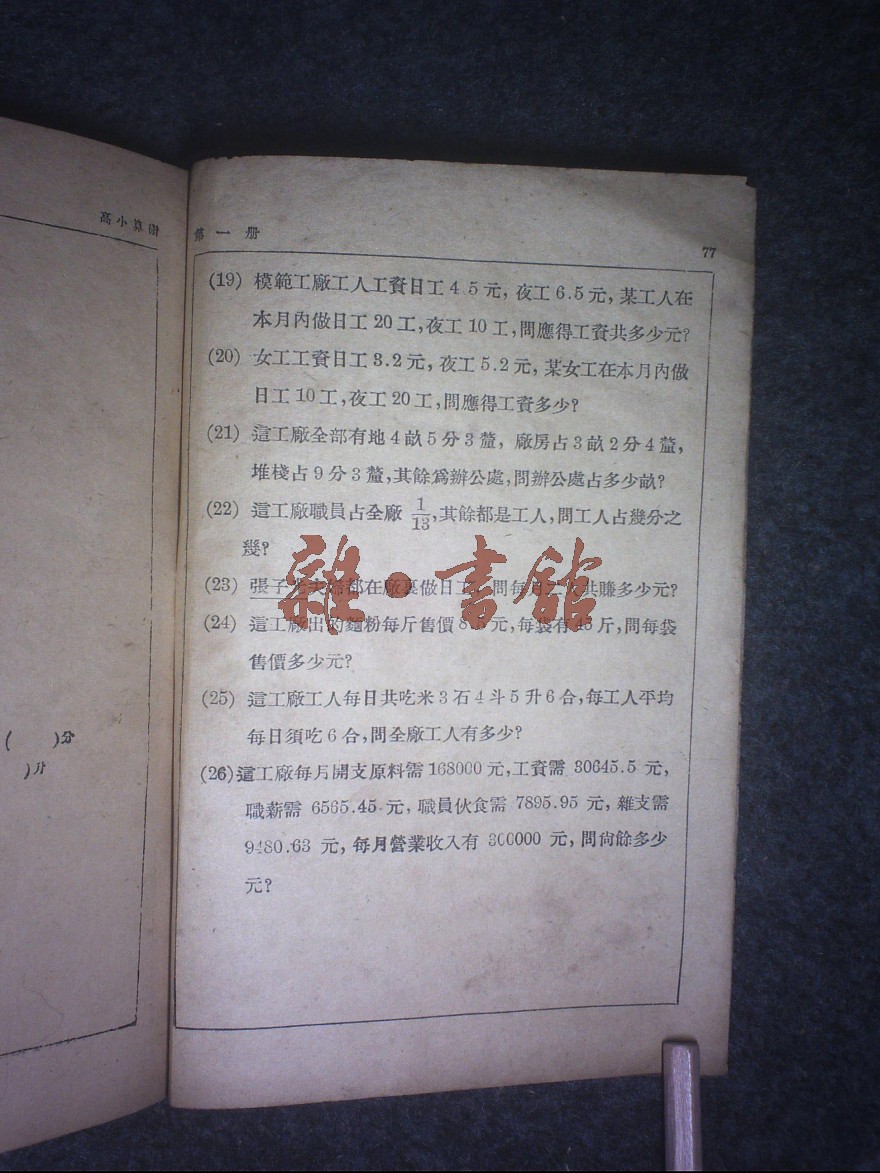 高小算術
(　　)分
)升
第一册
77
(19) 模範工廠工人工資日工4.5元, 夜工6.5元, 某工人在
本月內做日工20工,夜工10工,問應得工資共多少元?
(20) 女工工資日工3.2元, 夜工5.2元, 某女工在本月內做
日工10工,夜工20工,問應得工資多少?
(21) 這工廠全部有地4畝5分3釐, 廠房占3畝2分4釐,
堆棧占9分3釐,其餘爲辦公處,問辦公處占多少畝?
(22) 這工廠職員占全廠 1/13,其餘都是工人,問工人占幾分之
幾?
(23) 張子 夫婦都在廠裏做日工, 問每月二人共賺多少元?
(24) 這工廠出的麵粉每斤售價8.5元,每袋有45斤,問每袋
售價多少元?
(25) 這工廠工人每日共吃米3石4斗5升6合,每工人平均
每日須吃6合,問全廠工人有多少?
(26)這工廠每月開支原料需168000元,工資需 30645.5元,
職薪需 6565.45 元, 職員伙食需 7895.95 元, 雜支需
9480.63 元, 每月營業收入有 300000 元, 問尙餘多少
元?
雜·書館